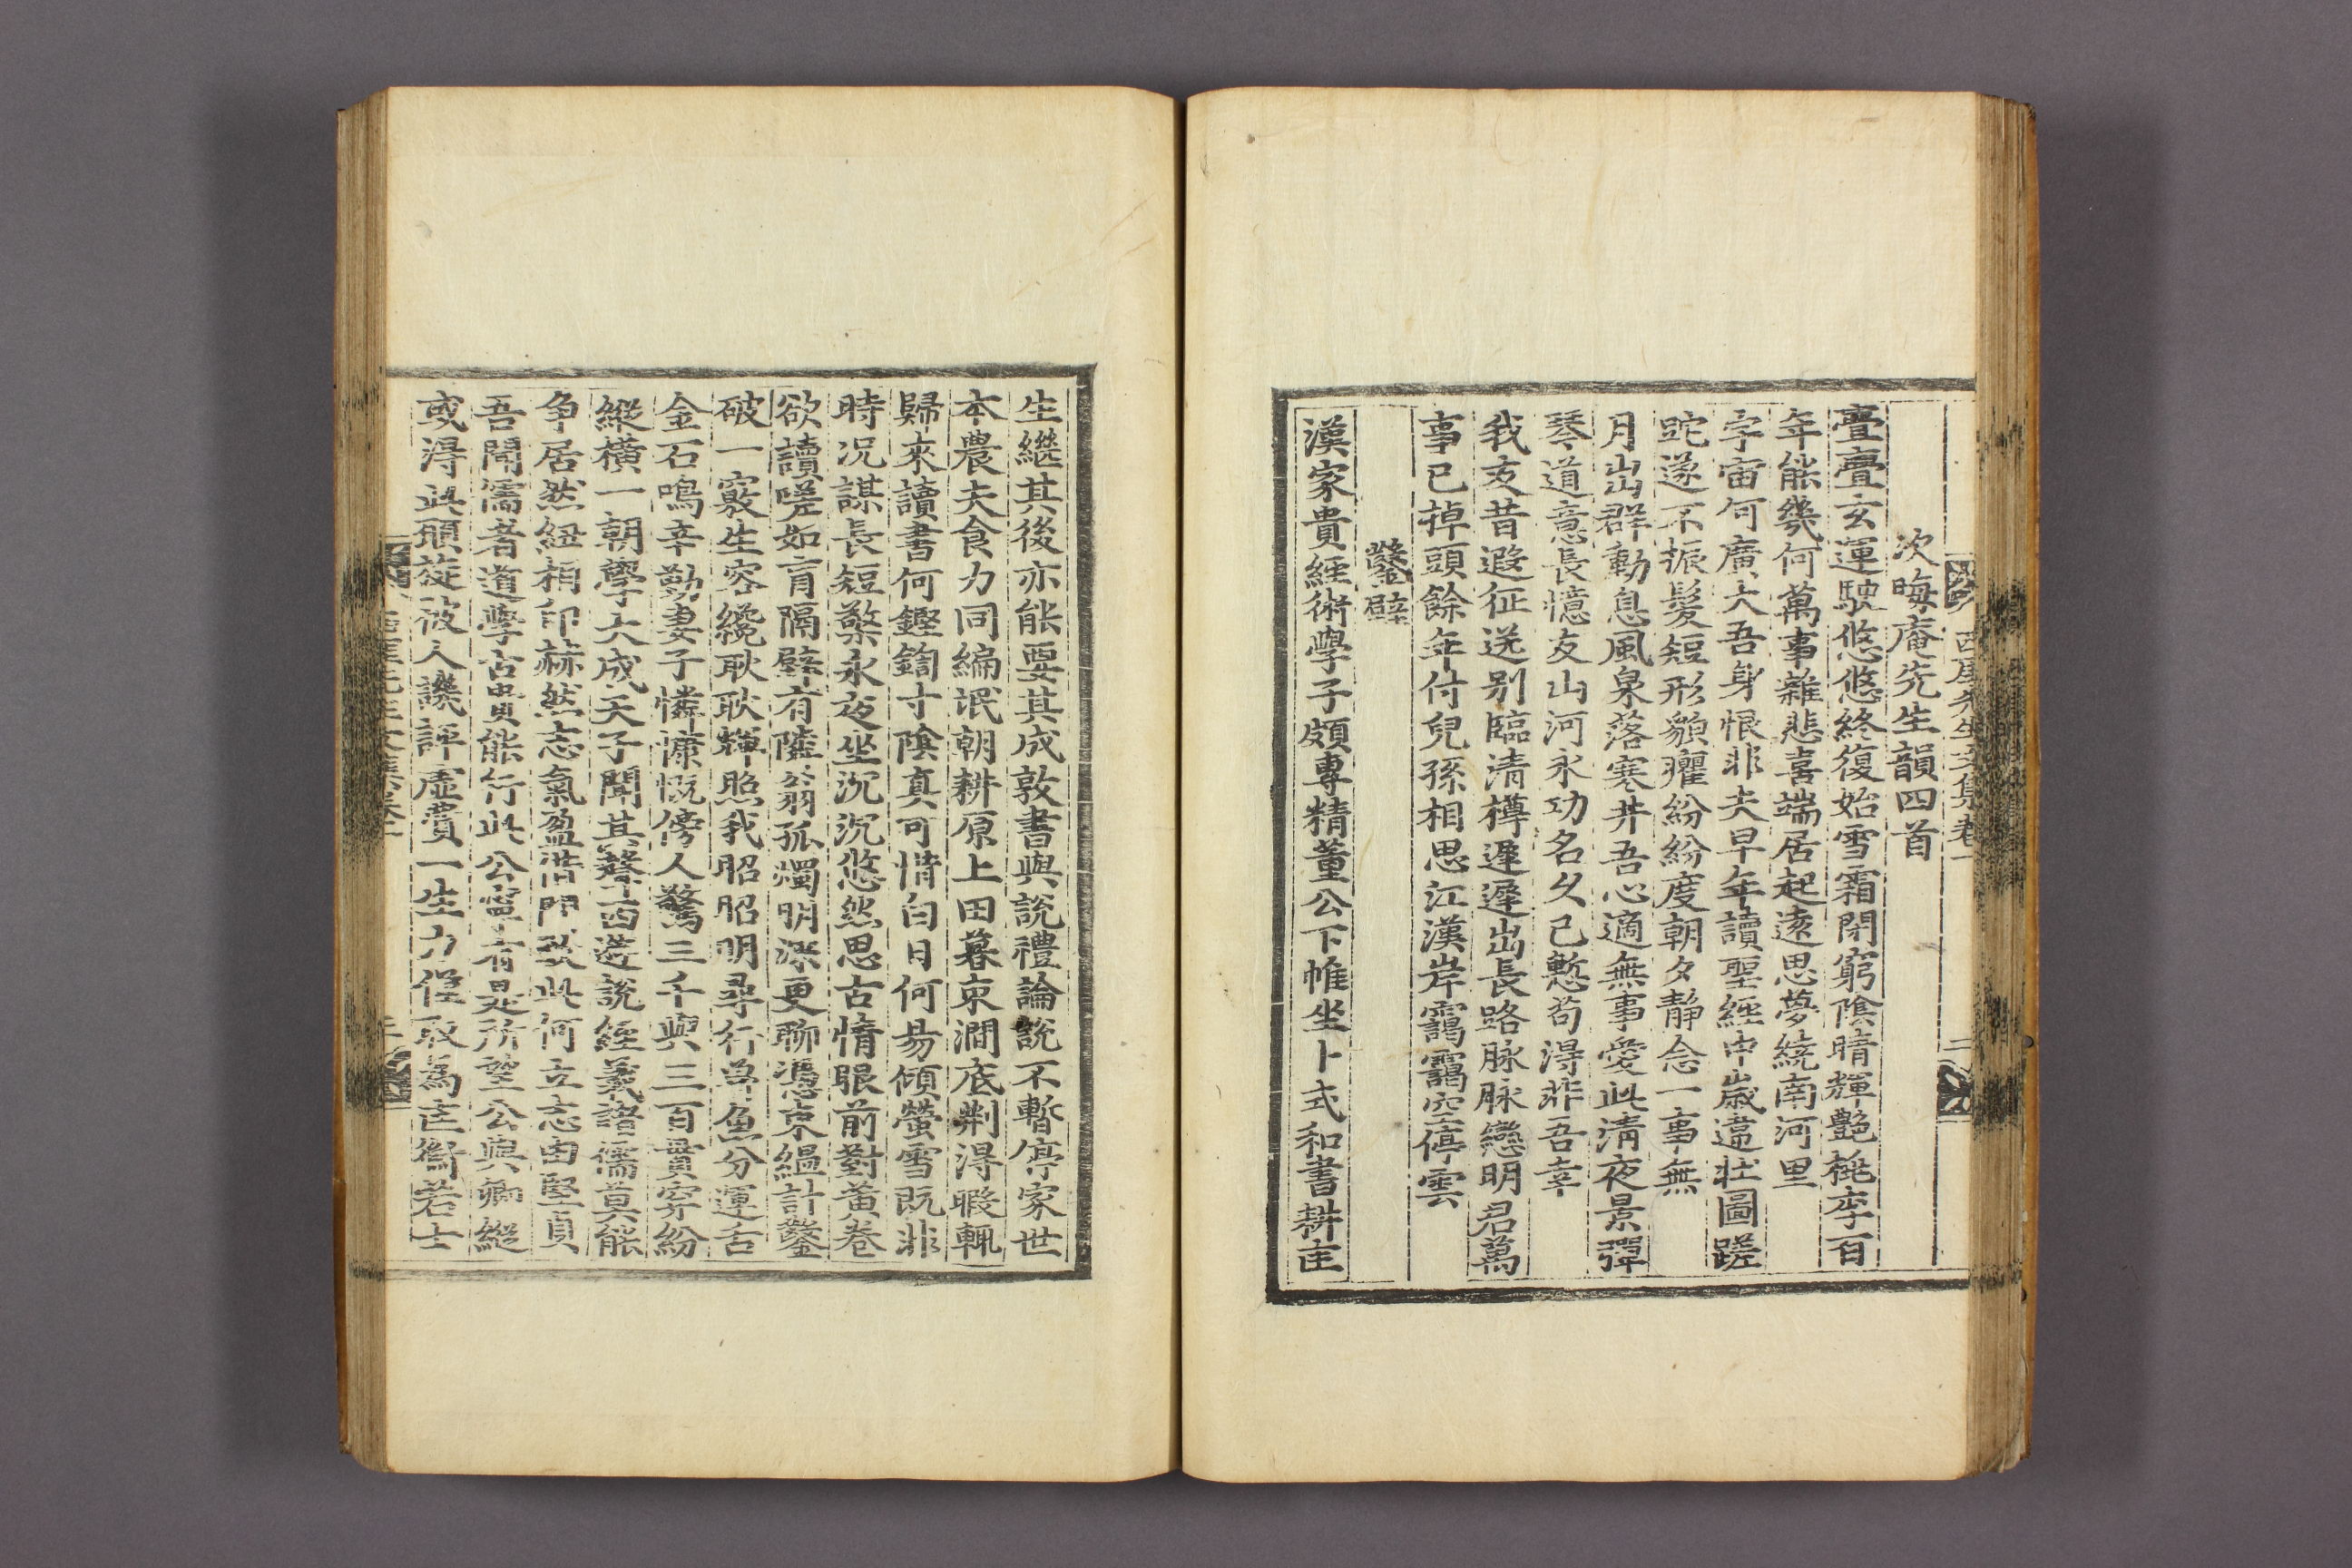 西厓先生文集卷一 二
次晦庵先生韻四首
亹亹玄運駛悠悠終復始雪霜閉窮陰晴輝艶桃李百
年能幾何萬事雜悲喜端居起遠思夢繞南河里
宇宙何廣大吾身恨非夫早年讀聖經中歲違壯圖蹉
跎遂不振髮短形貌癯紛紛度朝夕靜念一事無
月出群動息風泉落寒井吾心適無事愛此淸夜景彈
琴道意長憶友山河永功名久已慙苟得非吾幸
我友昔遐征送別臨清樽遲遲出長路脉脉戀明君萬
事已掉頭餘年付兒孫相思江漢岸靄靄空停雲
鑿壁
漢家貴經術學子頗專精董公下帷坐卜式和書耕匡
生繼其後亦能要其成敦書與說禮論說不暫停家世
本農夫食力同編氓朝耕原上田暮束澗底荆得暇輒
歸來讀書何鏗鍧寸陰真可惜白日何易傾螢雪旣非
時况謀長短檠永夜坐沉沉悠然思古情眼前對黃卷
欲讀嗟如盲隔壁有隣翁孤燭明深更聊憑束緼計鑿
破一竅生穿纔耿耿輝照我昭昭明尋行辛魚分運舌
金石鳴辛勤妻子憐慷慨傍人驚三千與三百貫穿紛
縱橫一朝學大成天子聞其聲西遊說經義諸儒莫能
爭居然紐相印赫然志氣盈借問致此何立志由堅貞
吾聞濡者道學古貴能行此公寧有是所望公與卿縱
或得此願旋被人譏評虛費一生力徒取爲匡衡若士